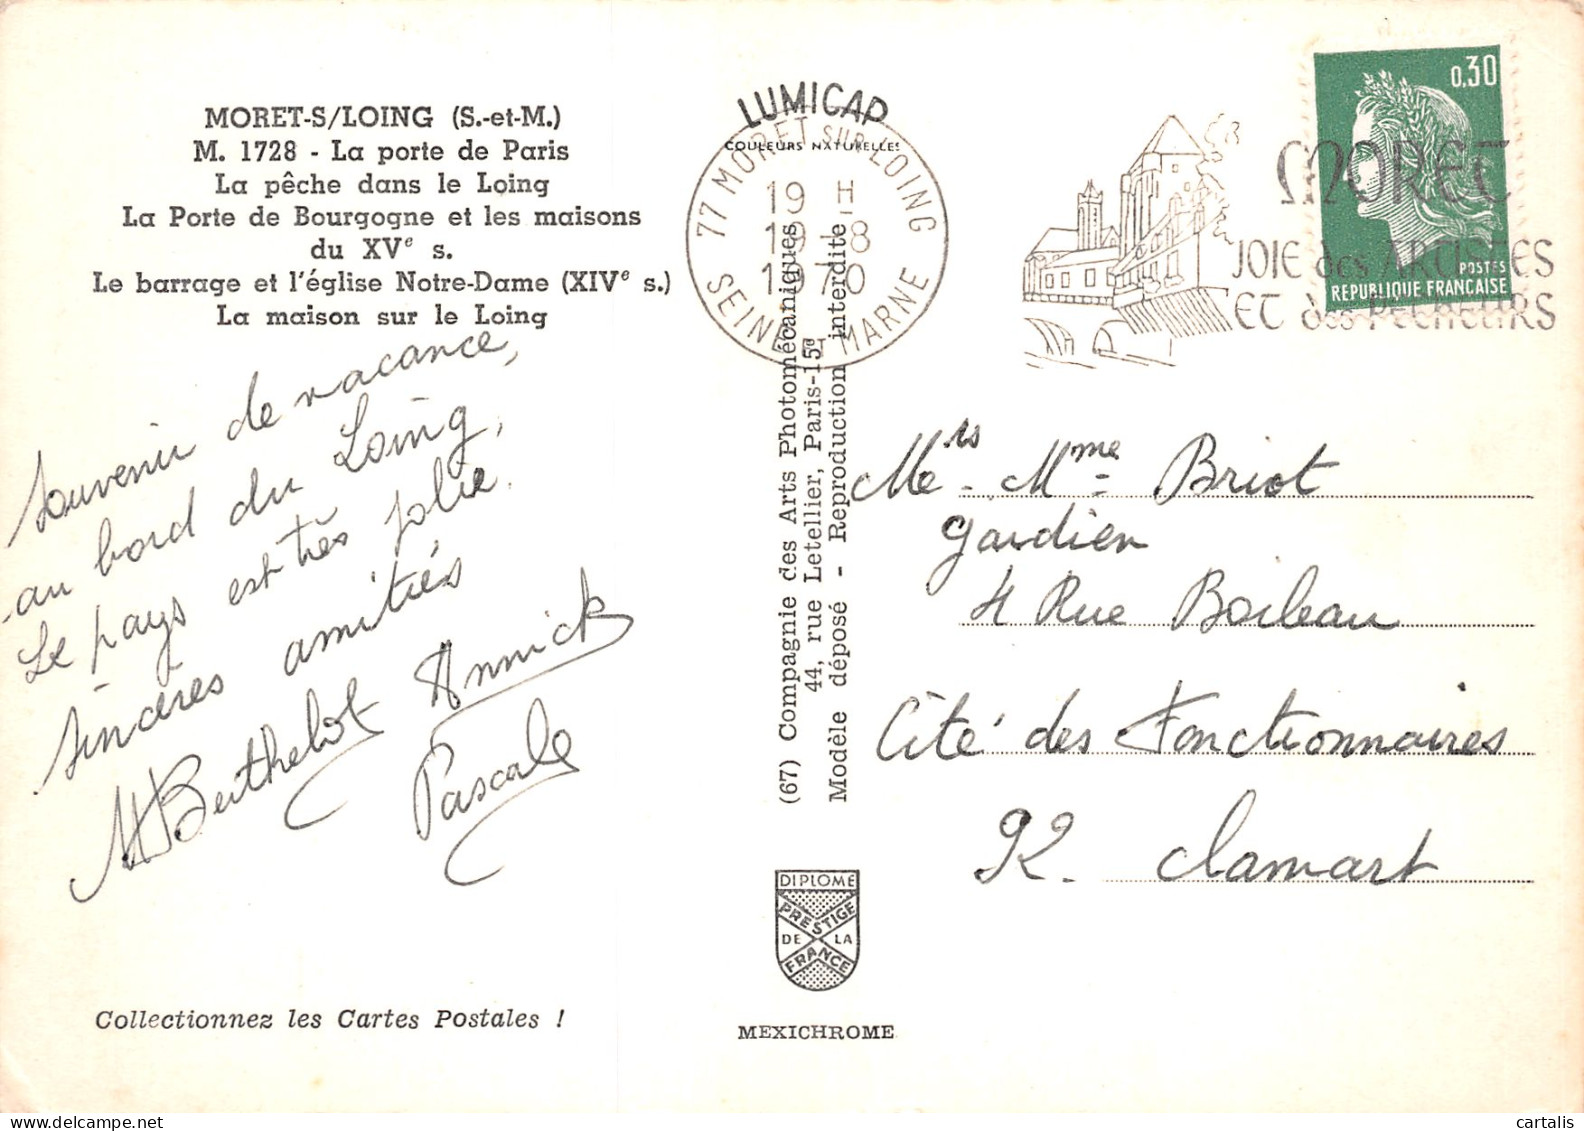 MORET-S/LOING (S.-et-M.)
M. 1728 - La porte de Paris
La pêche dans le Loing
La Porte de Bourgogne et les maisons
du XVe s.
Le barrage et l'église Notre-Dame (XIVe s.)
La maison sur le Loing
Souvenir de vacance,
au bord du Loing,
Le pays est très jolie.
sincères amitiés
M Berthelot Annick
Pascale
Collectionnez les Cartes Postales !
LUMICAP
COULEURS NATURELLES
77 MORET SUR LOING
19 H
19-8
1970
SEINE ET MARNE
(67) Compagnie des Arts Photomécaniques
44, rue Letellier, Paris-15e
Modèle déposé - Reproduction interdite
DIPLOME
PRESTIGE
DE LA
FRANCE
MEXICHROME
MORET
JOIE des ARTISTES
ET des PECHEURS
0,30
POSTES
REPUBLIQUE FRANÇAISE
Mers. Mme Briot
gardien
4 Rue Boileau
Cité des Fonctionnaires
92. Clamart
cartalis